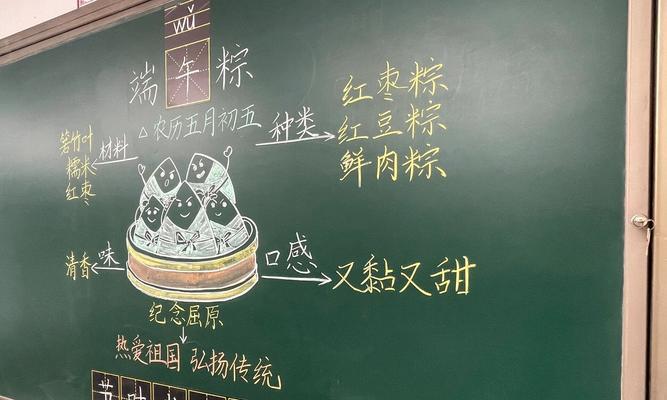 wǔ
端午粽
△农历五月初五
种类
红枣粽
红豆粽
鲜肉粽
材料
箬竹叶
糯米
红枣
味
清香
口感
又黏又甜
纪念屈原
热爱祖国 弘扬传统